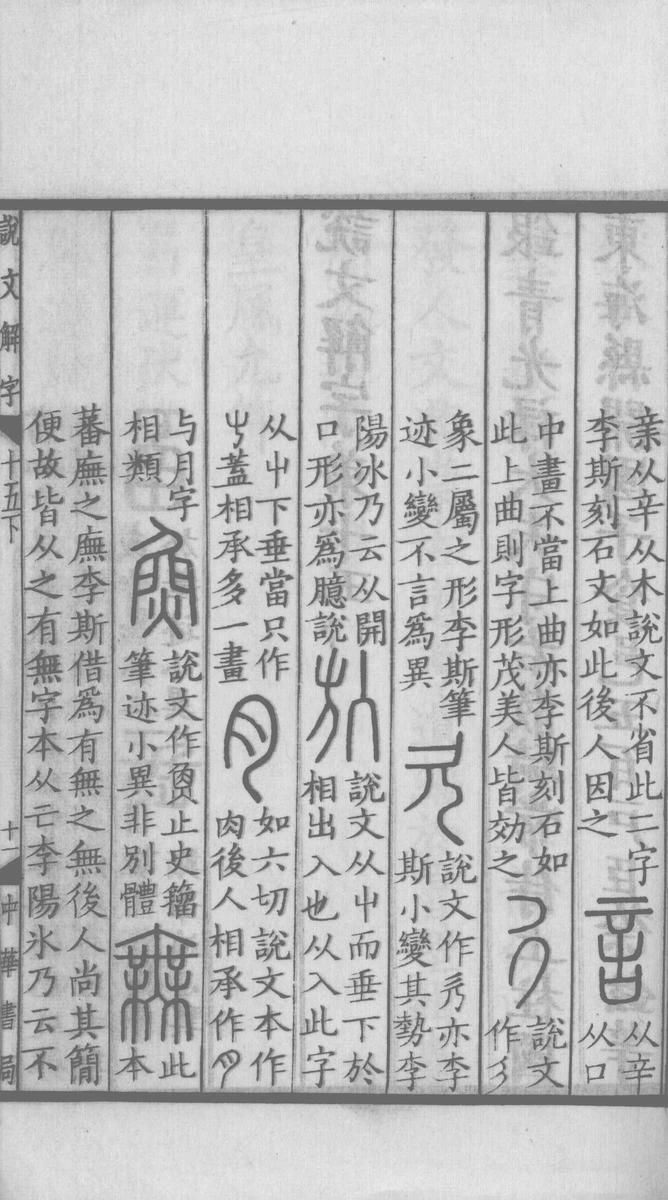 亲从辛从木說文不省此二字
李斯刻石文如此後人因之
言
从辛
从口
中畫不當上曲亦李斯刻石如
此上曲則字形茂美人皆効之
說文
作
象二屬之形李斯筆
迹小變不言爲異
說文作亦李
斯小變其勢李
陽冰乃云从開
口形亦爲臆說
㫃
說文从屮而垂下於
相出入也从入此字
从屮下垂當只作
蓋相承多一畫
肉
如六切說文本作
肉後人相承作
与月字
相類
魚
說文作止史籒
筆迹小異非別體
無
此
本
蕃廡之廡李斯借爲有無之無後人尚其簡
便故皆从之有無字本从亡李陽冰乃云不
說文解字 十五下
十一
中華書局